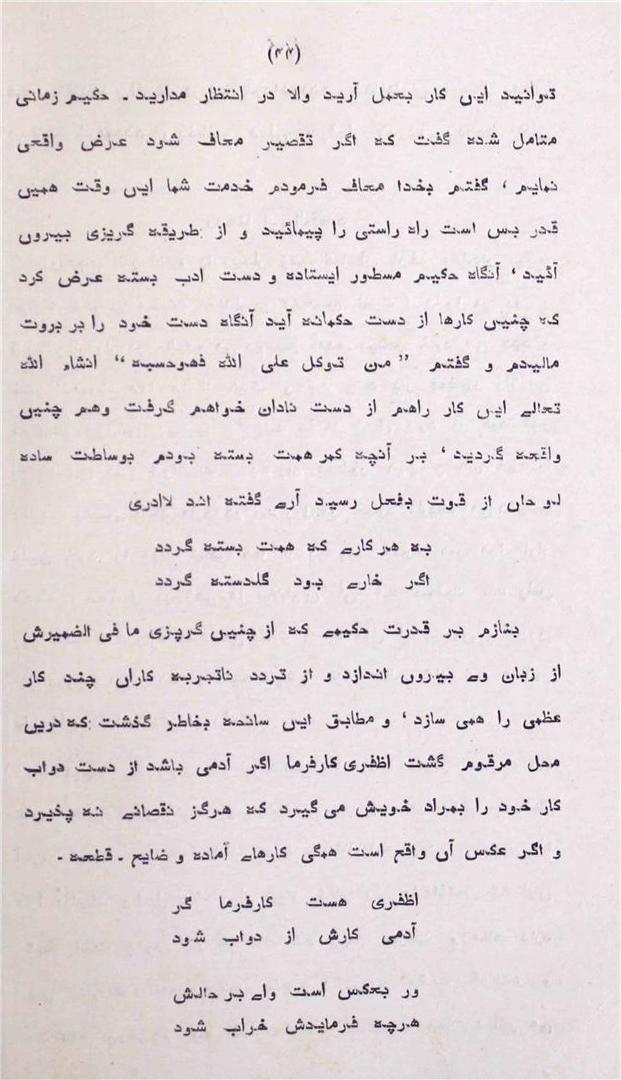 (۴۷)
توانید ایں کار بعمل آرید والا در انتظار مدارید ۔ حکیم زمانی
متامل شدہ گفت کہ اگر تقصیر معاف شود عرض واقعی
نمایم ، گفتم بخدا معاف فرمودم خدمت شما ایں وقت همیں
قدر بس است راہ راستی را پیمائید و از طریقہ گریزی بیروں
آئید ، آنگاہ حکیم مسطور ایستادہ و دست ادب بستہ عرض کرد
کہ چنیں کارها از دست حکمانہ آید آنگاہ دست خود را بر بروت
مالیدم و گفتم ” من توکل علی اللہ فهوحسبہ “ انشاء اللہ
تعالے ایں کار راهم از دست نادان خواهم گرفت وهم چنیں
واقعہ گردید ، بر آنچہ کمر همت بستہ بودم بوساطت سادہ
لوحاں از قوت بفعل رسید آرے گفتہ اند لاادری
بہ هر کارے کہ همت بستہ گردد
اگر خارے بود گلدستہ گردد
بنازم بر قدرت حکیمے کہ از چنیں گرپزی ما فی الضمیرش
از زبان وے بیروں اندازد و از تردد ناتجربہ کاراں چند کار
عظمی را همی سازد ، و مطابق ایں سانحہ بخاطر گذشت کہ دریں
محل مرقوم گشت اظفری کارفرما اگر آدمی باشد از دست دواب
کار خود را بمراد خویش می گیرد کہ هرگز نقصانے نہ پذیرد
و اگر عکس آں واقع است همگی کارهاے آمادہ و ضایع ۔ قطعہ ۔
اظفری هست کارفرما گر
آدمی کارش از دواب شود
ور بعکس است واے بر حالش
هرچہ فرمایدش خراب شود